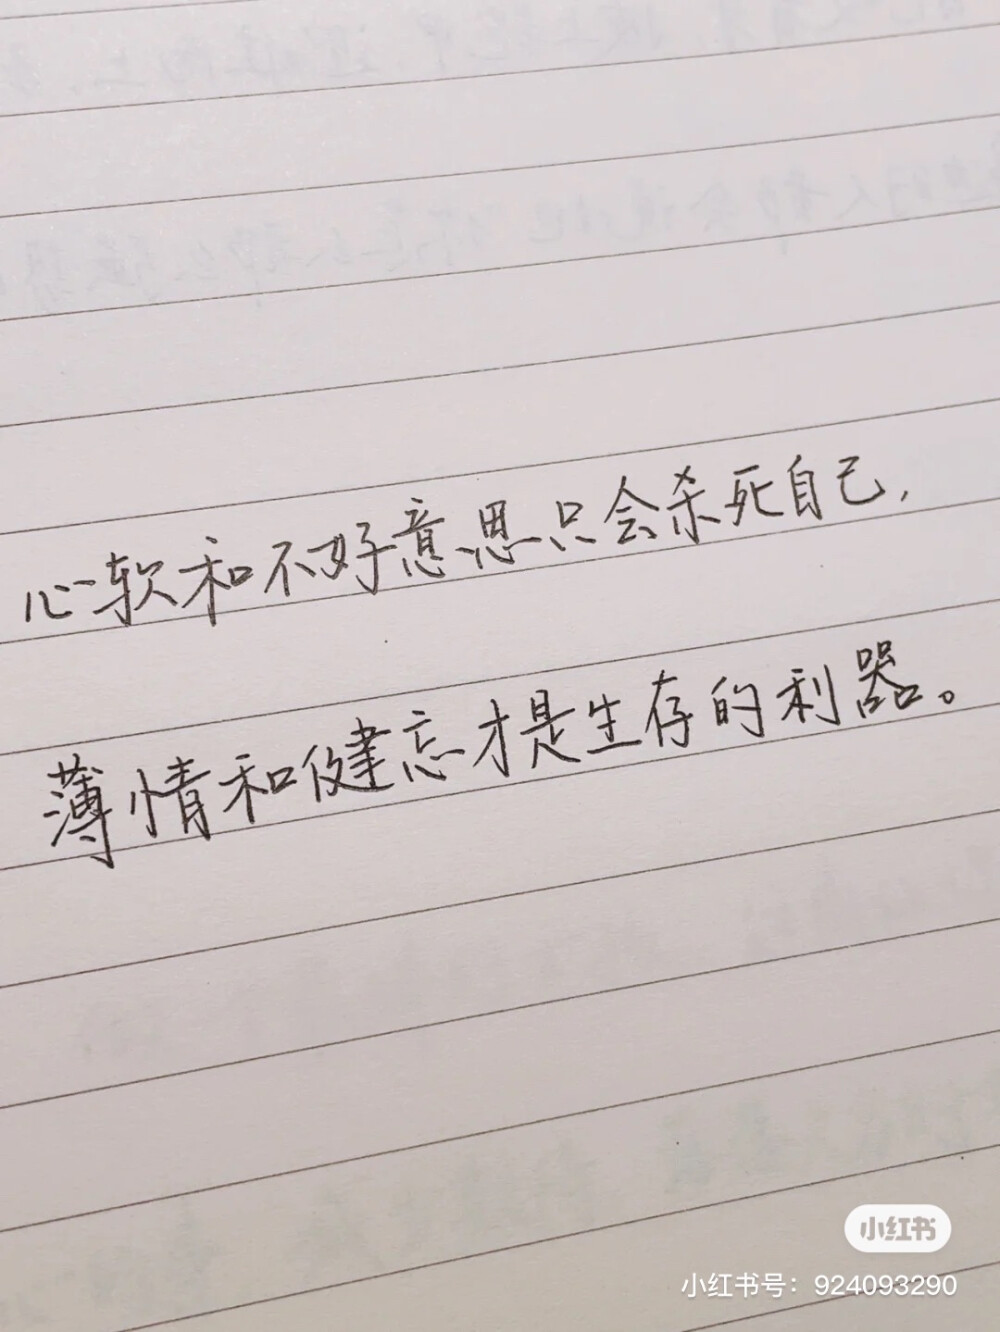 心软和不好意思只会杀死自己,
薄情和健忘才是生存的利器。
小红书
小红书号：924093290